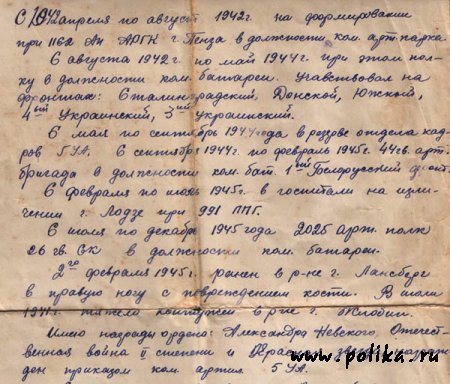 апреля по август 1942г. на формировании
при 1162 Ап АРГК г. Пенза в должности ком. арт. парка.
С августа 1942г. по май 1944г при этом пол-
ку в должности ком. баттареи. Учавствовал на
фронтах: Сталинградский, Донской, Южный,
4ый Украинский, 3ий Украинский.
С мая по сентябрь 1944года в резерве отдела кад-
ров 5 УА. С сентября 1944г. по февраль 1945г. 44 гв. арт.
бригада в должности ком. бат. 1ый Белорусский фронт.
С февраля по июль 1945г. в госпитали на изле-
чении г. Лодзе при 991 ППГ.
С июля по декабрь 1945 года 2025 Арт. полк
26 гв. СК в должности ком. батареи.
2го февраля 1945г. ранен в р-не г. Лансберг
в правую ногу с повреждением кости. В июле
тяжело контужен в р-не г. Жлобин.
Имею награды ордена: Александра Невского, Отечест-
венная война II степени и Красная звезда награж-
ден приказом ком. артил. 5 УА.
www.polika.ru